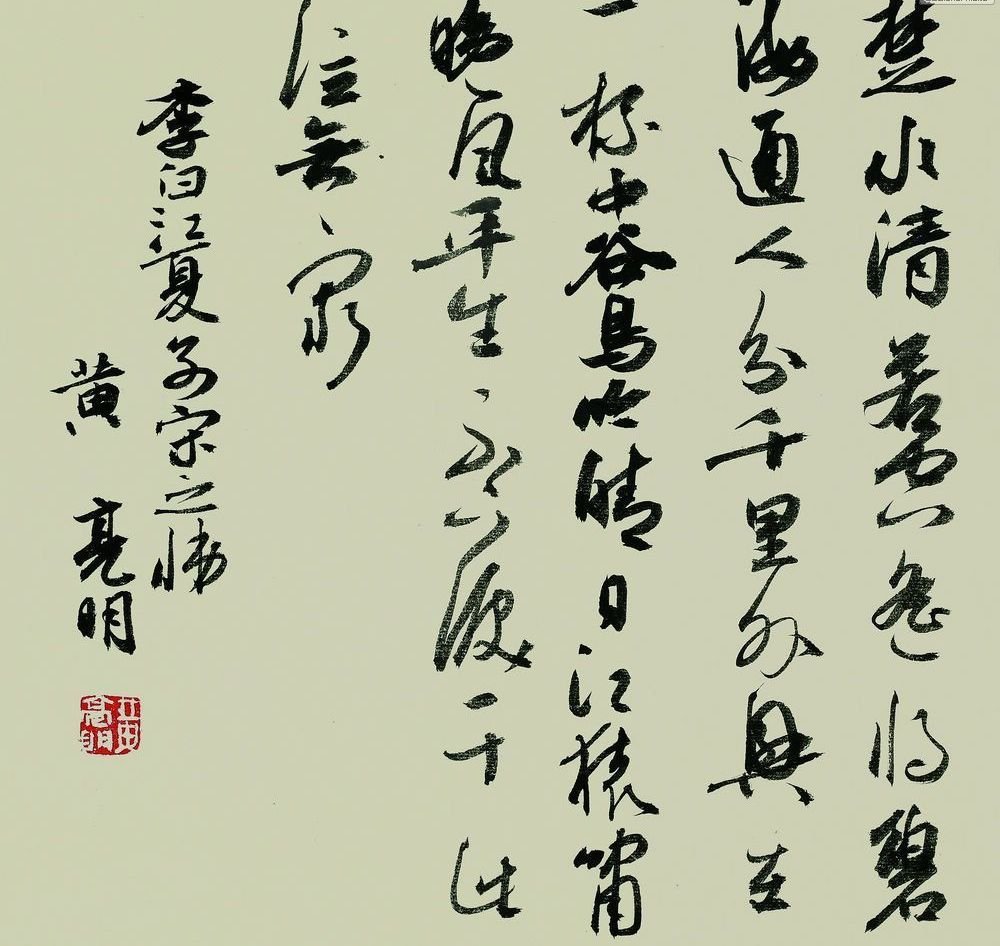 楚水清若空遥将碧
海通人分千里外興在
一杯中谷鳥吟晴日江猿嘯
晚風平生不下淚于此
泣無窮
李白江夏别宋之悌
黄亮明